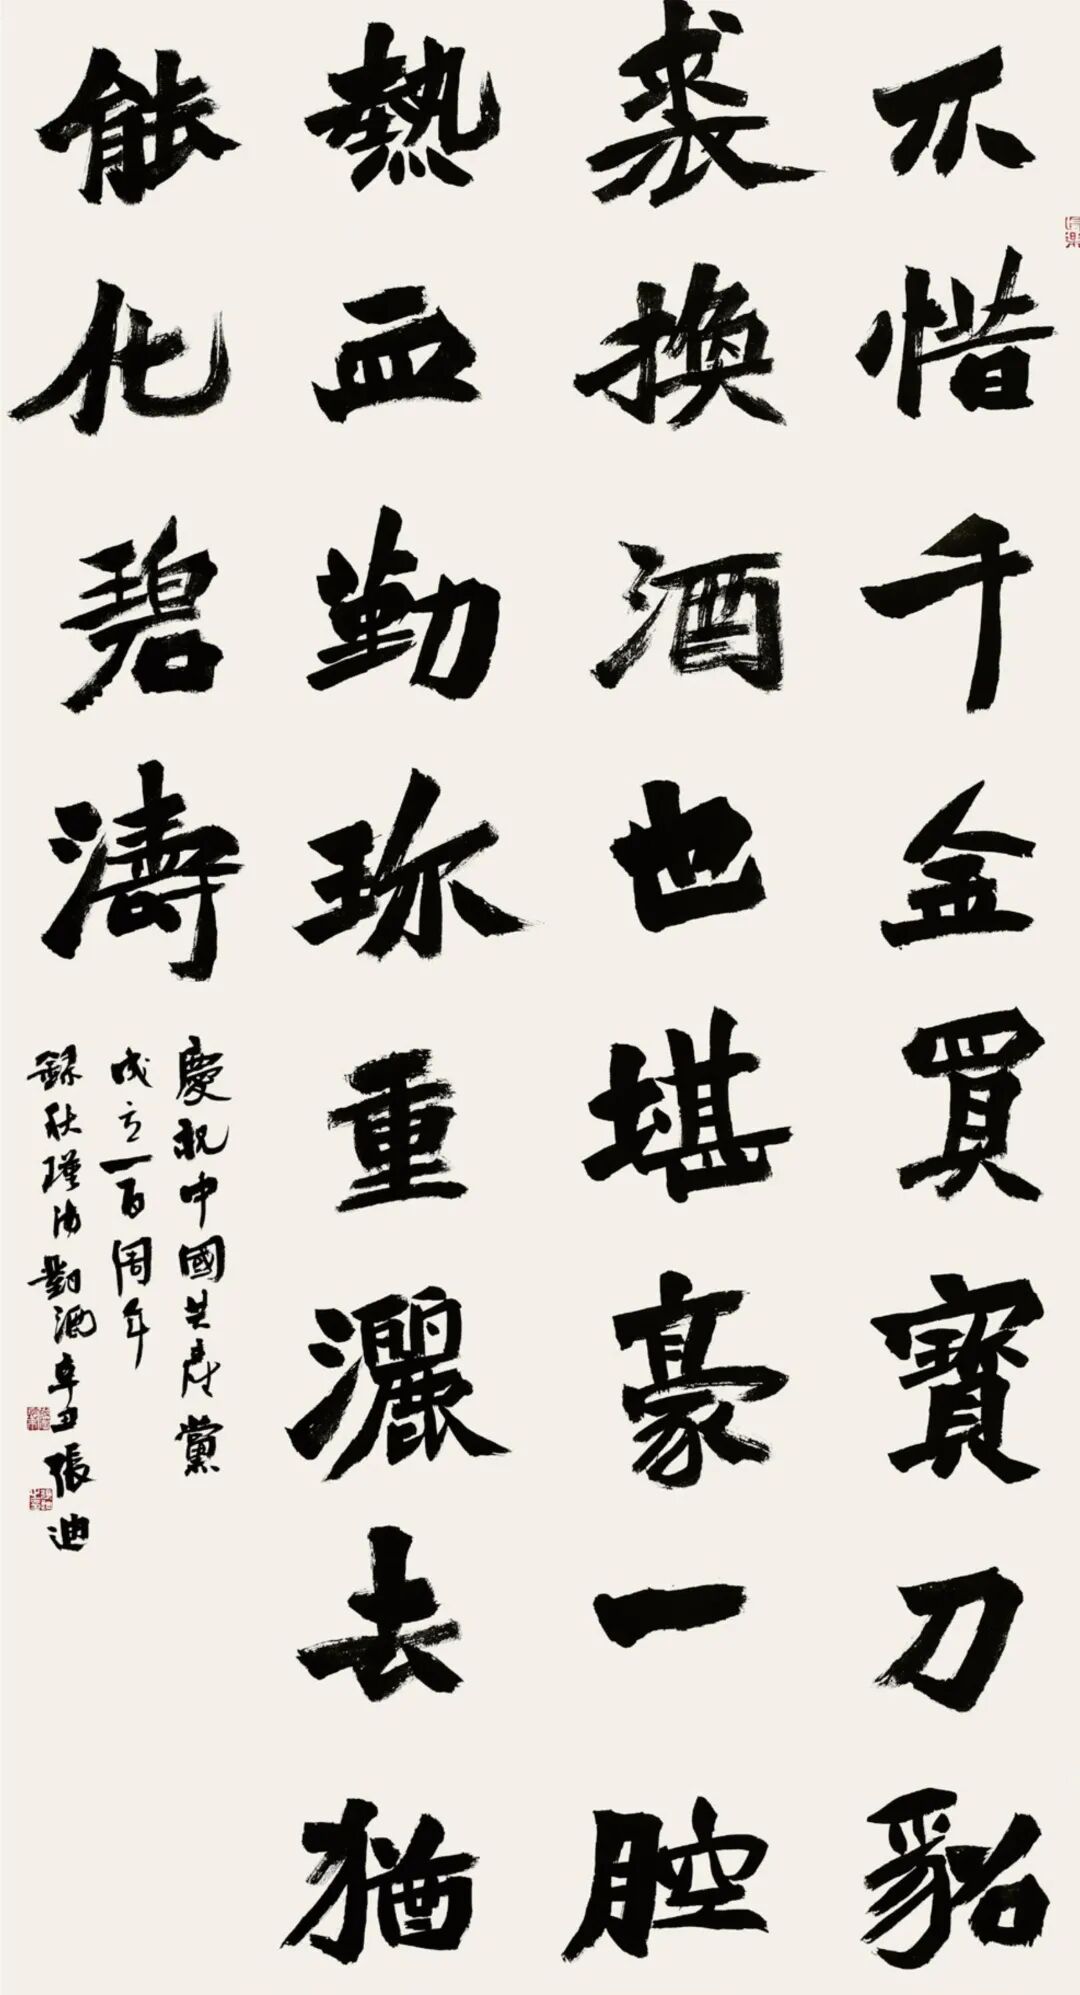 不惜千金買寶刀貂
裘換酒也堪豪一腔
熱血勤珎重灑去猶
能化碧濤
慶祝中國共產黨
成立一百周年
錄秋瑾詩對酒辛丑張迪